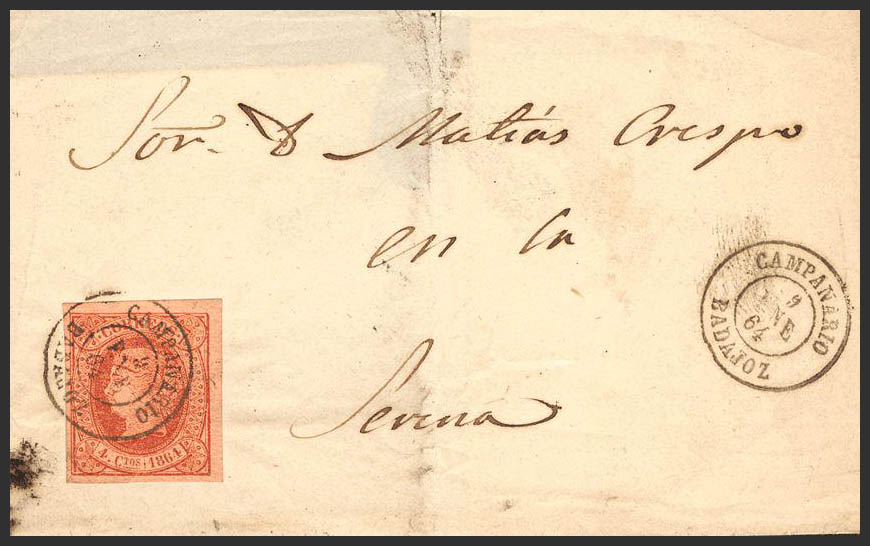 Sor. D Matías Crespo
en la
Serena
CAMPANARIO
9
ENE
64
BADAJOZ
CAMPANARIO
BADAJOZ
4. CTOS. 1864